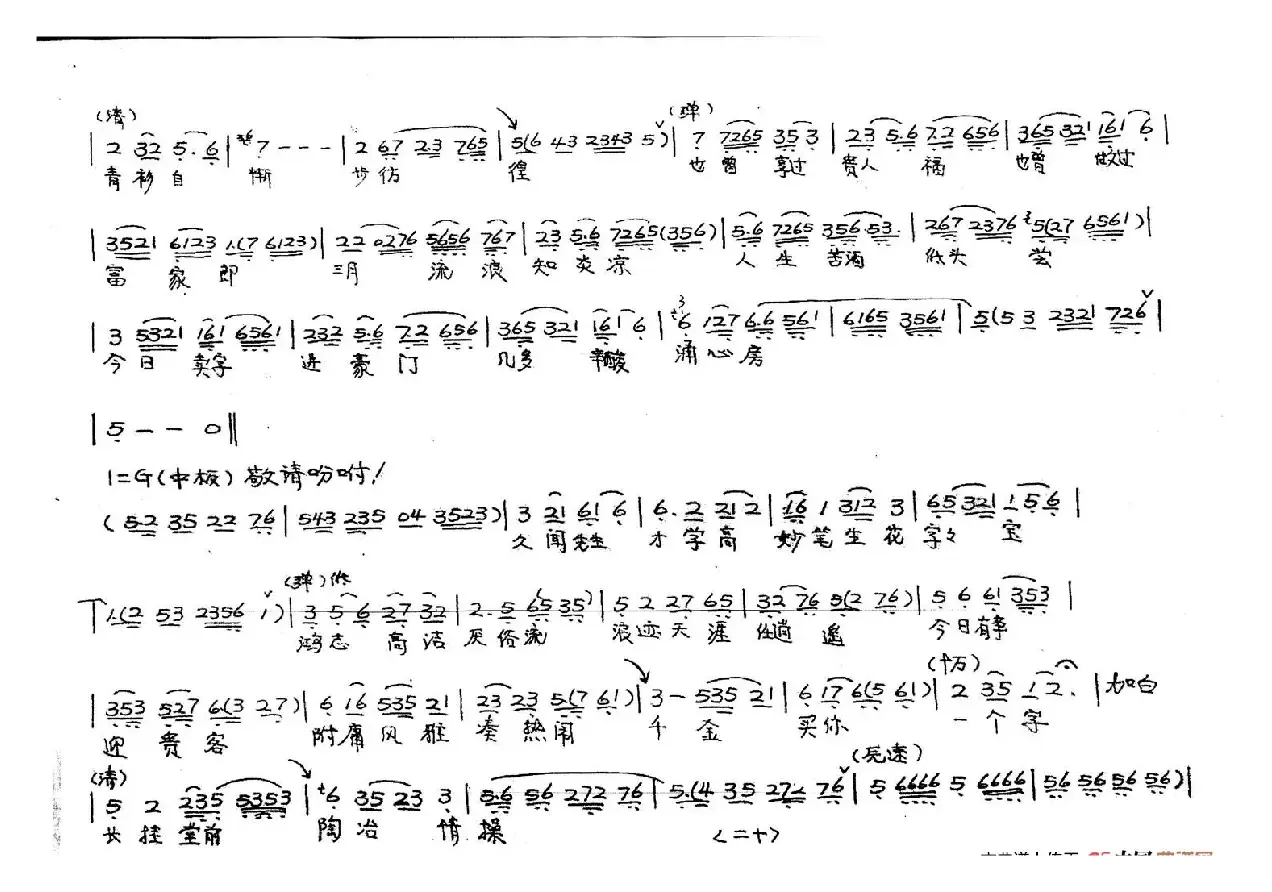 (清) (弹)
| 2 32 5. 6 | 7 - - - | 2 67 23 765 | 5(6 43 2343 5) | 7 7265 35 3 | 23 5.6 72 656 | 365 321 161 6 |
青衫自惭 步彷徨 也曾享过贵人福 也曾做过
| 3521 6123 1.(7 6123) | 22 0276 5656 767 | 23 5.6 7265(356) | 5.6 7265 356 53. | 267 2376 5(27 6561) |
富家郎 三月流浪知炎凉 人生苦酒低头尝
| 3 5321 161 6561 | 232 5.6 72 656 | 365 321 161 6 | 6 127 6.6 561 | 6165 3561 | 5(5 3 2321 726 |
今日卖字进豪门 几多辛酸涌心房
| 5 - - 0 ||
1=G(中板) 敬请吩咐!
(52 35 22 76 | 543 235 04 3523) | 3 21 61 6 | 6. 2 21 2 | 16 1 312 3 | 65 321 1 5 6 |
久闻先生才学高 妙笔生花字々宝
1.(2 53 2356 1) | 3 5 6 27 32 | 2. 5 65 35) | 5 2 27 65 | 32 76 5(2 76) | 5 6 61 353 |
(弹) 鸿志高洁厌俗流 浪迹天涯任逍遥 今日有事
| 353 527 6(3 27) | 6 16 535 21 | 23 23 5(7 61) | 3 - 535 21 | 6 17 6(5 61) | 2 35 1 2. | 加白
迎贵客 附庸风雅凑热闹 千金买你一个字
(清)
| 5 2 235 5353 | 6 35 23 3 | 5.6 56 272 76 | 5.(4 35 272 76 | 5 6666 5 6666 | 56 56 56 56) |
长挂堂前陶冶情操 <二十>